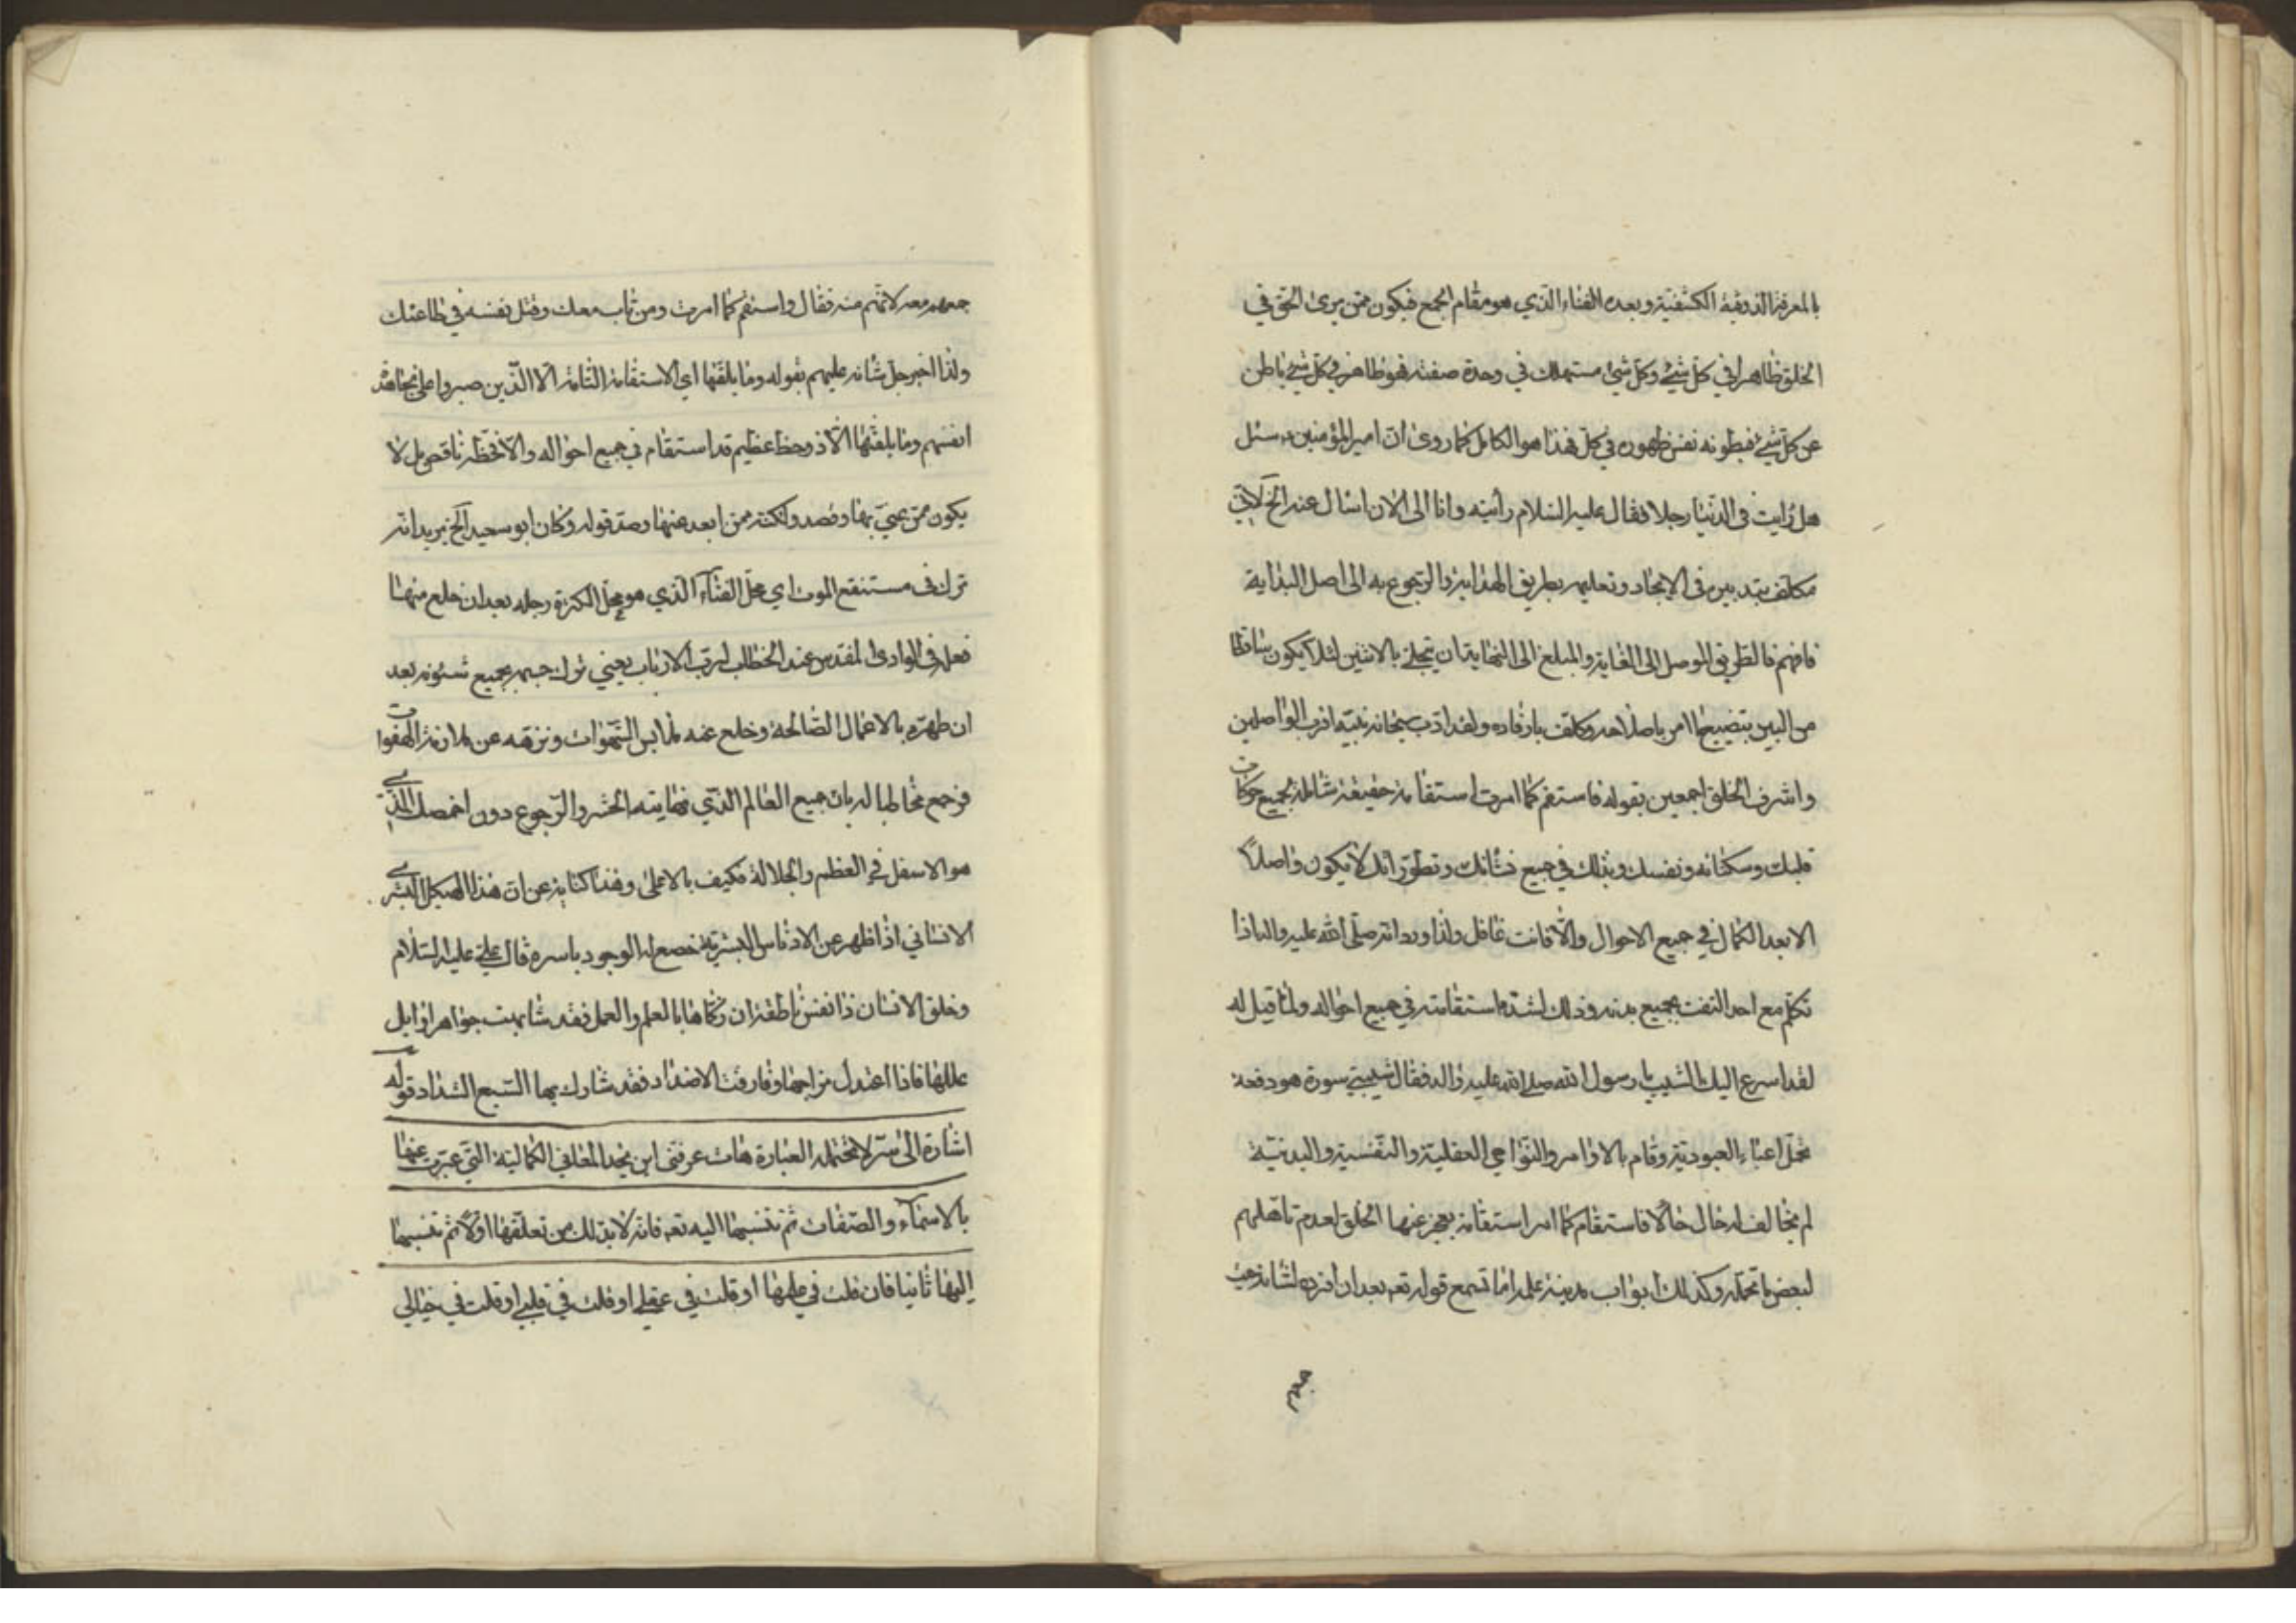 بالمعرفة الذوقية الكشفية وبعده الفناء الذي هو مقام الجمع فيكون ممن يرى الحق في
الخلق ظاهرا في كل شيء وكل شيء مستهلك في وحدة صفته فهو ظاهر في كل شيء باطن
عن كل شيء فبطونه نفس ظهوره في كل فهذا هو الكامل كما روى ان امير المؤمنين سئل
هل رايت في الدنيا رجلا فقال عليه السلام رأيته وانا الى الان اسأل عنه الخ لأني
مكلف بتدبيره في الايجاد وتعليمه بطريق الهداية والرجوع به الى اصل البداية
فافهم فالطريق الموصل الى الغاية والمبلغ الى النهاية ان تتجلى بالاثنين لئلا يكون ساقطا
من البين بتضييع ما امر باصلاحه وكلف بارفاده ولقد ادب سبحانه نبيه اقرب الواصلين
واشرف الخلق اجمعين بقوله فاستقم كما امرت استقامة حقيقة شاملة لجميع حركات
قلبك وسكناته ونفسك وبذلك في جميع نشأتك وتطوراتك لا يكون واصلاً
الا بعد الكمال في جميع الاحوال والا فانت غافل ولذا ورد انه صلى الله عليه واله اذا
تكلم مع احد التفت بجميع بدنه وذلك لشدة استقامته في جميع احواله ولما قيل له
لقد اسرع اليك الشيب يا رسول الله صلى الله عليه واله فقال شيبتني سورة هود فعه
تحمل اعباء العبودية وقام بالاوامر والنواهي العقلية والنفسية والبدنية
لم يخالف له حال حالا فاستقام كما امر استقامة يعجز عنها الخلق لعدم تاهلهم
لبعض ما تحمله وكذلك ابواب مدينة علمه اما تسمع قوله تعه بعد ان افرده لشانه حيث
جمعهم
جمعهم معه لانهم منه فقال واستقم كما امرت ومن تاب معك وقتل نفسه في طاعتك
ولذا اخبر جل شانه عليهم بقوله وما يلقيها اي الاستقامة التامة الا الذين صبروا على مجاهدة
انفسهم وما يلقيها الا ذو حظ عظيم قد استقام في جميع احواله والا فحظه ناقص بل لا
يكون ممن عني بها وقصد ولكنه ممن ابعد عنها وصد قوله وكان ابو سعيد الخ يريد انه
ترك في مستنقع الموت اي محل الفناء الذي هو محل الكثرة رجله بعد ان خلع منها
نعله في الوادي المقدس عند الخطاب لرب الارباب يعني ترك جسمه بجميع شئونه بعد
ان طهره بالاعمال الصالحة وخلع عنه ملابس الشهوات ونزهه عن ملازمة الهفوات
فرجع مخاطبا له بان جميع العالم الذي نهايته الحشر والرجوع دون اخمصك الذي
هو الاسفل في العظم والجلالة فكيف بالاعلى وهذا كناية عن ان هذا الهيكل البشري
الانساني اذا ظهر عن الادناس البشرية خضع له الوجود باسره قال علي عليه السلام
وخلق الانسان ذا نفس ناطقة ان زكاها بالعلم والعمل فقد شابهت جواهر اوايل
عللها فاذا اعتدل مزاجها وفارقت الاضداد فقد شارك بها السبع الشداد قوله
اشارة الى سر لا تحتمله العبارة هات عرفني اين تجد المعاني الكمالية التي عبرت عنها
بالاسماء والصفات ثم تنسبها اليه تعه فانه لا بد لك من تعلقها اولا ثم تنسبها
اليها ثانيا فان قلت في علمها او قلت في عقلي او قلت في قلبي او قلت في خيالي